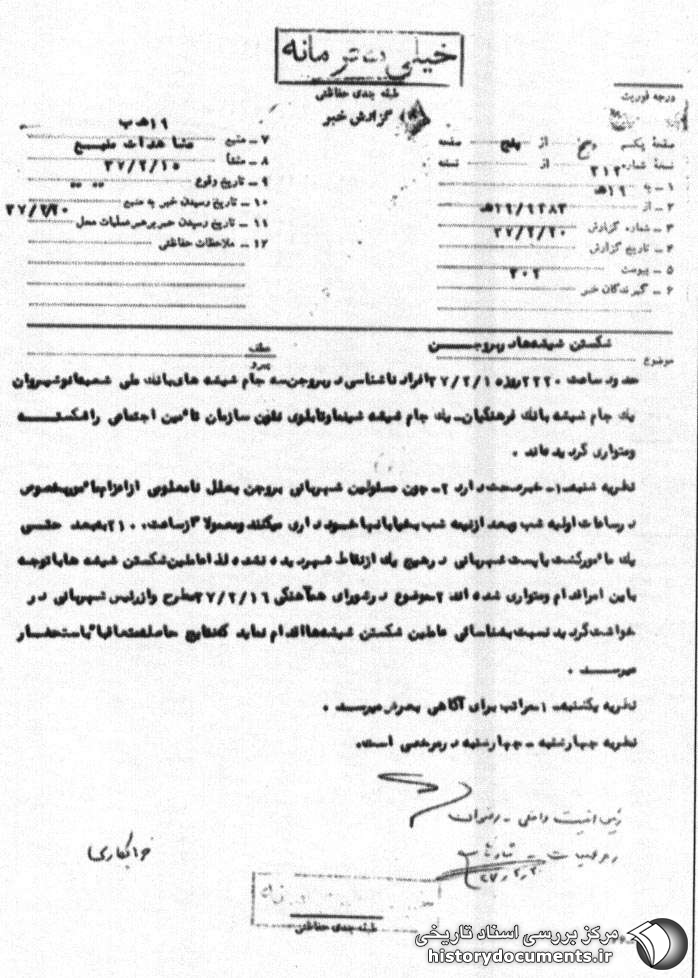 خیلی محرمانه
طبقه بندی حفاظتی
گزارش خبر
درجه فوریت
صفحه یکم از پنج صفحه
نسخه شماره از نسخه
۱ ـ به ۳۱۲
۲ ـ از ۱۹ﻫ
۳ ـ شماره گزارش ۱۹/۹۲۸۳ﻫ
۴ ـ تاریخ گزارش ۳۷/۲/۲۰
۵ ـ پیوست
۶ ـ گیرندگان خبر ۲۰۲
۷ ـ منبع ۱۹ﻫ ب
۸ ـ منشأ مشاهدات منبع
۹ ـ تاریخ وقوع ۳۷/۲/۱۵
۱۰ ـ تاریخ رسیدن خبر به منبع
۱۱ ـ تاریخ رسیدن خبر برهبر عملیات محل ۳۷/۲/۲۰
۱۲ ـ ملاحظات حفاظتی
موضوع شکستن شیشه‌ها در بروجن
عطف
پیرو
حدود ساعت ۲۲۳۰ روز ۳۷/۲/۱۵ افراد ناشناسی در بروجن سه جام شیشه های بانک ملی شعبه
یک جام شیشه بانک فرهنگیان ـ یک جام شیشه سینما وتابلوی نئون سازمان تأمین اجتماعی را شکسته
ومتواری گردیده‌اند .
نظریه شنبه ـ ۱ـ خبر صحت دارد ۲ـ چون مسئولین شهربانی بروجن بعلل نامعلومی از اعزام مأمور بخصوص
در ساعات اولیه شب وبعد از نیمه شب بخیابانها خودداری میکنند ومعمولا از ساعت ۲۱۰۰ ببعد حتی
یک مأمور گشت یا پست شهربانی در هیچ یک از نقاط شهر دیده نشده لذا عاملین شکستن شیشه ها با توجه
باین امر اقدام ومتواری شده اند ۳ـ موضوع در شورای هماهنگی ۳۷/۲/۱۶ مطرح واز رئیس شهربانی در
خواست گردید نسبت بشناسائی عاملین شکستن شیشه‌ها اقدام نماید که نتایج حاصله متعاقبا باستحضار
میرسد .
نظریه یکشنبه ـ ۱ـ مراتب برای آگاهی بعرض میرسد .
نظریه چهارشنبه ـ چهارشنبه در مرخصی است.
رئیس امنیت داخلی ـ رضوان
رهبر عملیات ـ
۳۷٫۲٫۲۰
طبقه بندی حفاظتی
مرکز بررسی اسناد تاریخی
historydocuments.ir